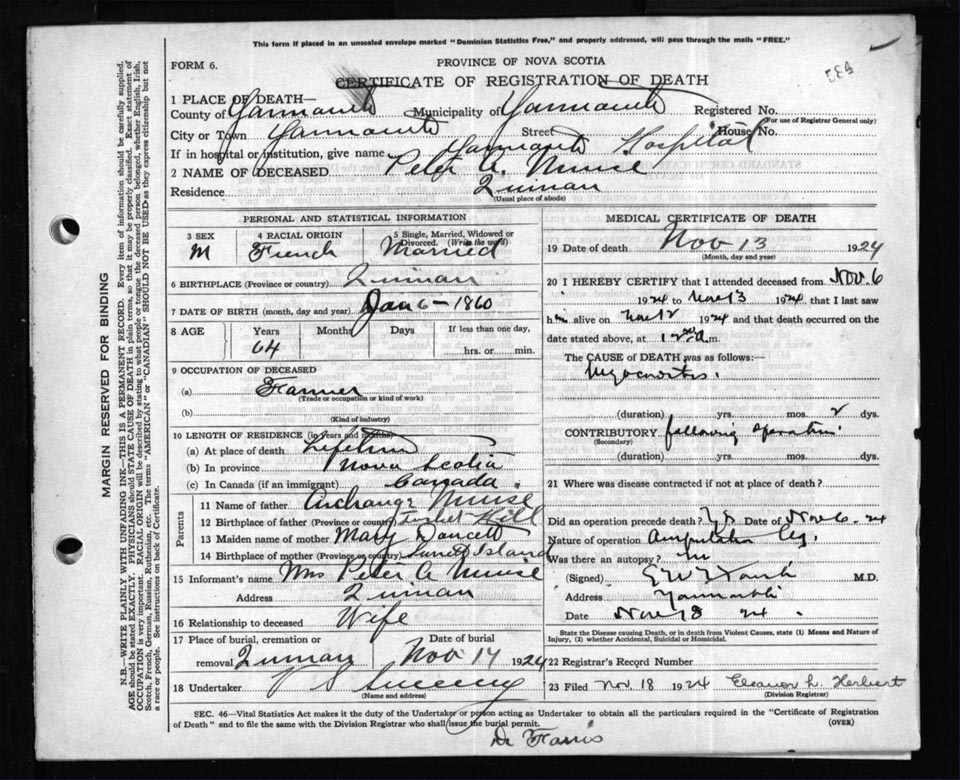 This form if placed in an unsealed envelope marked "Dominion Statistics Free," and properly addressed, will pass through the mails "FREE."
FORM 6.
PROVINCE OF NOVA SCOTIA
CERTIFICATE OF REGISTRATION OF DEATH
1 PLACE OF DEATH—
County of Yarmouth Municipality of Yarmouth Registered No.
(For use of Registrar General only)
City or Town Yarmouth Street House No.
If in hospital or institution, give name Yarmouth Hospital
2 NAME OF DECEASED Peter A. Muise
Residence Quinan
(Usual place of abode)
PERSONAL AND STATISTICAL INFORMATION
3 SEX 4 RACIAL ORIGIN 5 Single, Married, Widowed or Divorced. (Write the word)
M French Married
6 BIRTHPLACE (Province or country) Quinan
7 DATE OF BIRTH (month, day and year) Jan 6 - 1860
8 AGE Years Months Days If less than one day,
64 hrs. or min.
9 OCCUPATION OF DECEASED
(a) Farmer
(Trade or occupation or kind of work)
(b)
(Kind of industry)
10 LENGTH OF RESIDENCE (in years and months)
(a) At place of death Lifetime
(b) In province Nova Scotia
(c) In Canada (if an immigrant) Canada.
Parents
11 Name of father Archange Muise
12 Birthplace of father (Province or country) Hill
13 Maiden name of mother Mary Doucett
14 Birthplace of mother (Province or country) Island
15 Informant's name Mrs Peter A Muise
Address Quinan
16 Relationship to deceased Wife
17 Place of burial, cremation or removal Quinan Date of burial Nov 14 1924
18 Undertaker V S Sweeny
(Name and address)
MEDICAL CERTIFICATE OF DEATH
19 Date of death Nov 13 1924
(Month, day and year)
20 I HEREBY CERTIFY that I attended deceased from Nov. 6
1924 to Nov 13 1924 that I last saw
him alive on Nov 12 1924 and that death occurred on the
date stated above, at 12 a.m.
The CAUSE of DEATH was as follows:—
Myocarditis.
(duration) yrs. mos. 2 dys.
CONTRIBUTORY following operation
(Secondary)
(duration) yrs. mos. dys.
21 Where was disease contracted if not at place of death?
Did an operation precede death? Yes Date of Nov 6. 24
Nature of operation Amputation leg.
Was there an autopsy? no
(Signed) M.D.
Address Yarmouth
Date Nov 18 24.
State the Disease causing Death, or in death from Violent Causes, state (1) Means and Nature of Injury, (2) whether Accidental, Suicidal or Homicidal.
22 Registrar's Record Number
23 Filed Nov. 18 1924 Eleanor L. Herbert
(Division Registrar)
SEC. 46—Vital Statistics Act makes it the duty of the Undertaker or person acting as Undertaker to obtain all the particulars required in the "Certificate of Registration
of Death" and to file the same with the Division Registrar who shall issue the burial permit. (OVER)
Dr Farris
MARGIN RESERVED FOR BINDING
N.B.—WRITE PLAINLY WITH UNFADING INK—THIS IS A PERMANENT RECORD. Every item of information should be carefully supplied.
AGE should be stated EXACTLY. PHYSICIANS should STATE CAUSE OF DEATH in plain terms, so that it may be properly classified. Exact statement of
OCCUPATION is very important. RACIAL ORIGIN will be described by stating to what people or tongue the deceased person belonged, whether English, Irish,
Scotch, French, German, Russian, Ruthenian, etc. The terms "AMERICAN" or "CANADIAN" SHOULD NOT BE USED as they express citizenship but not
a race or people. See instructions on back of Certificate.